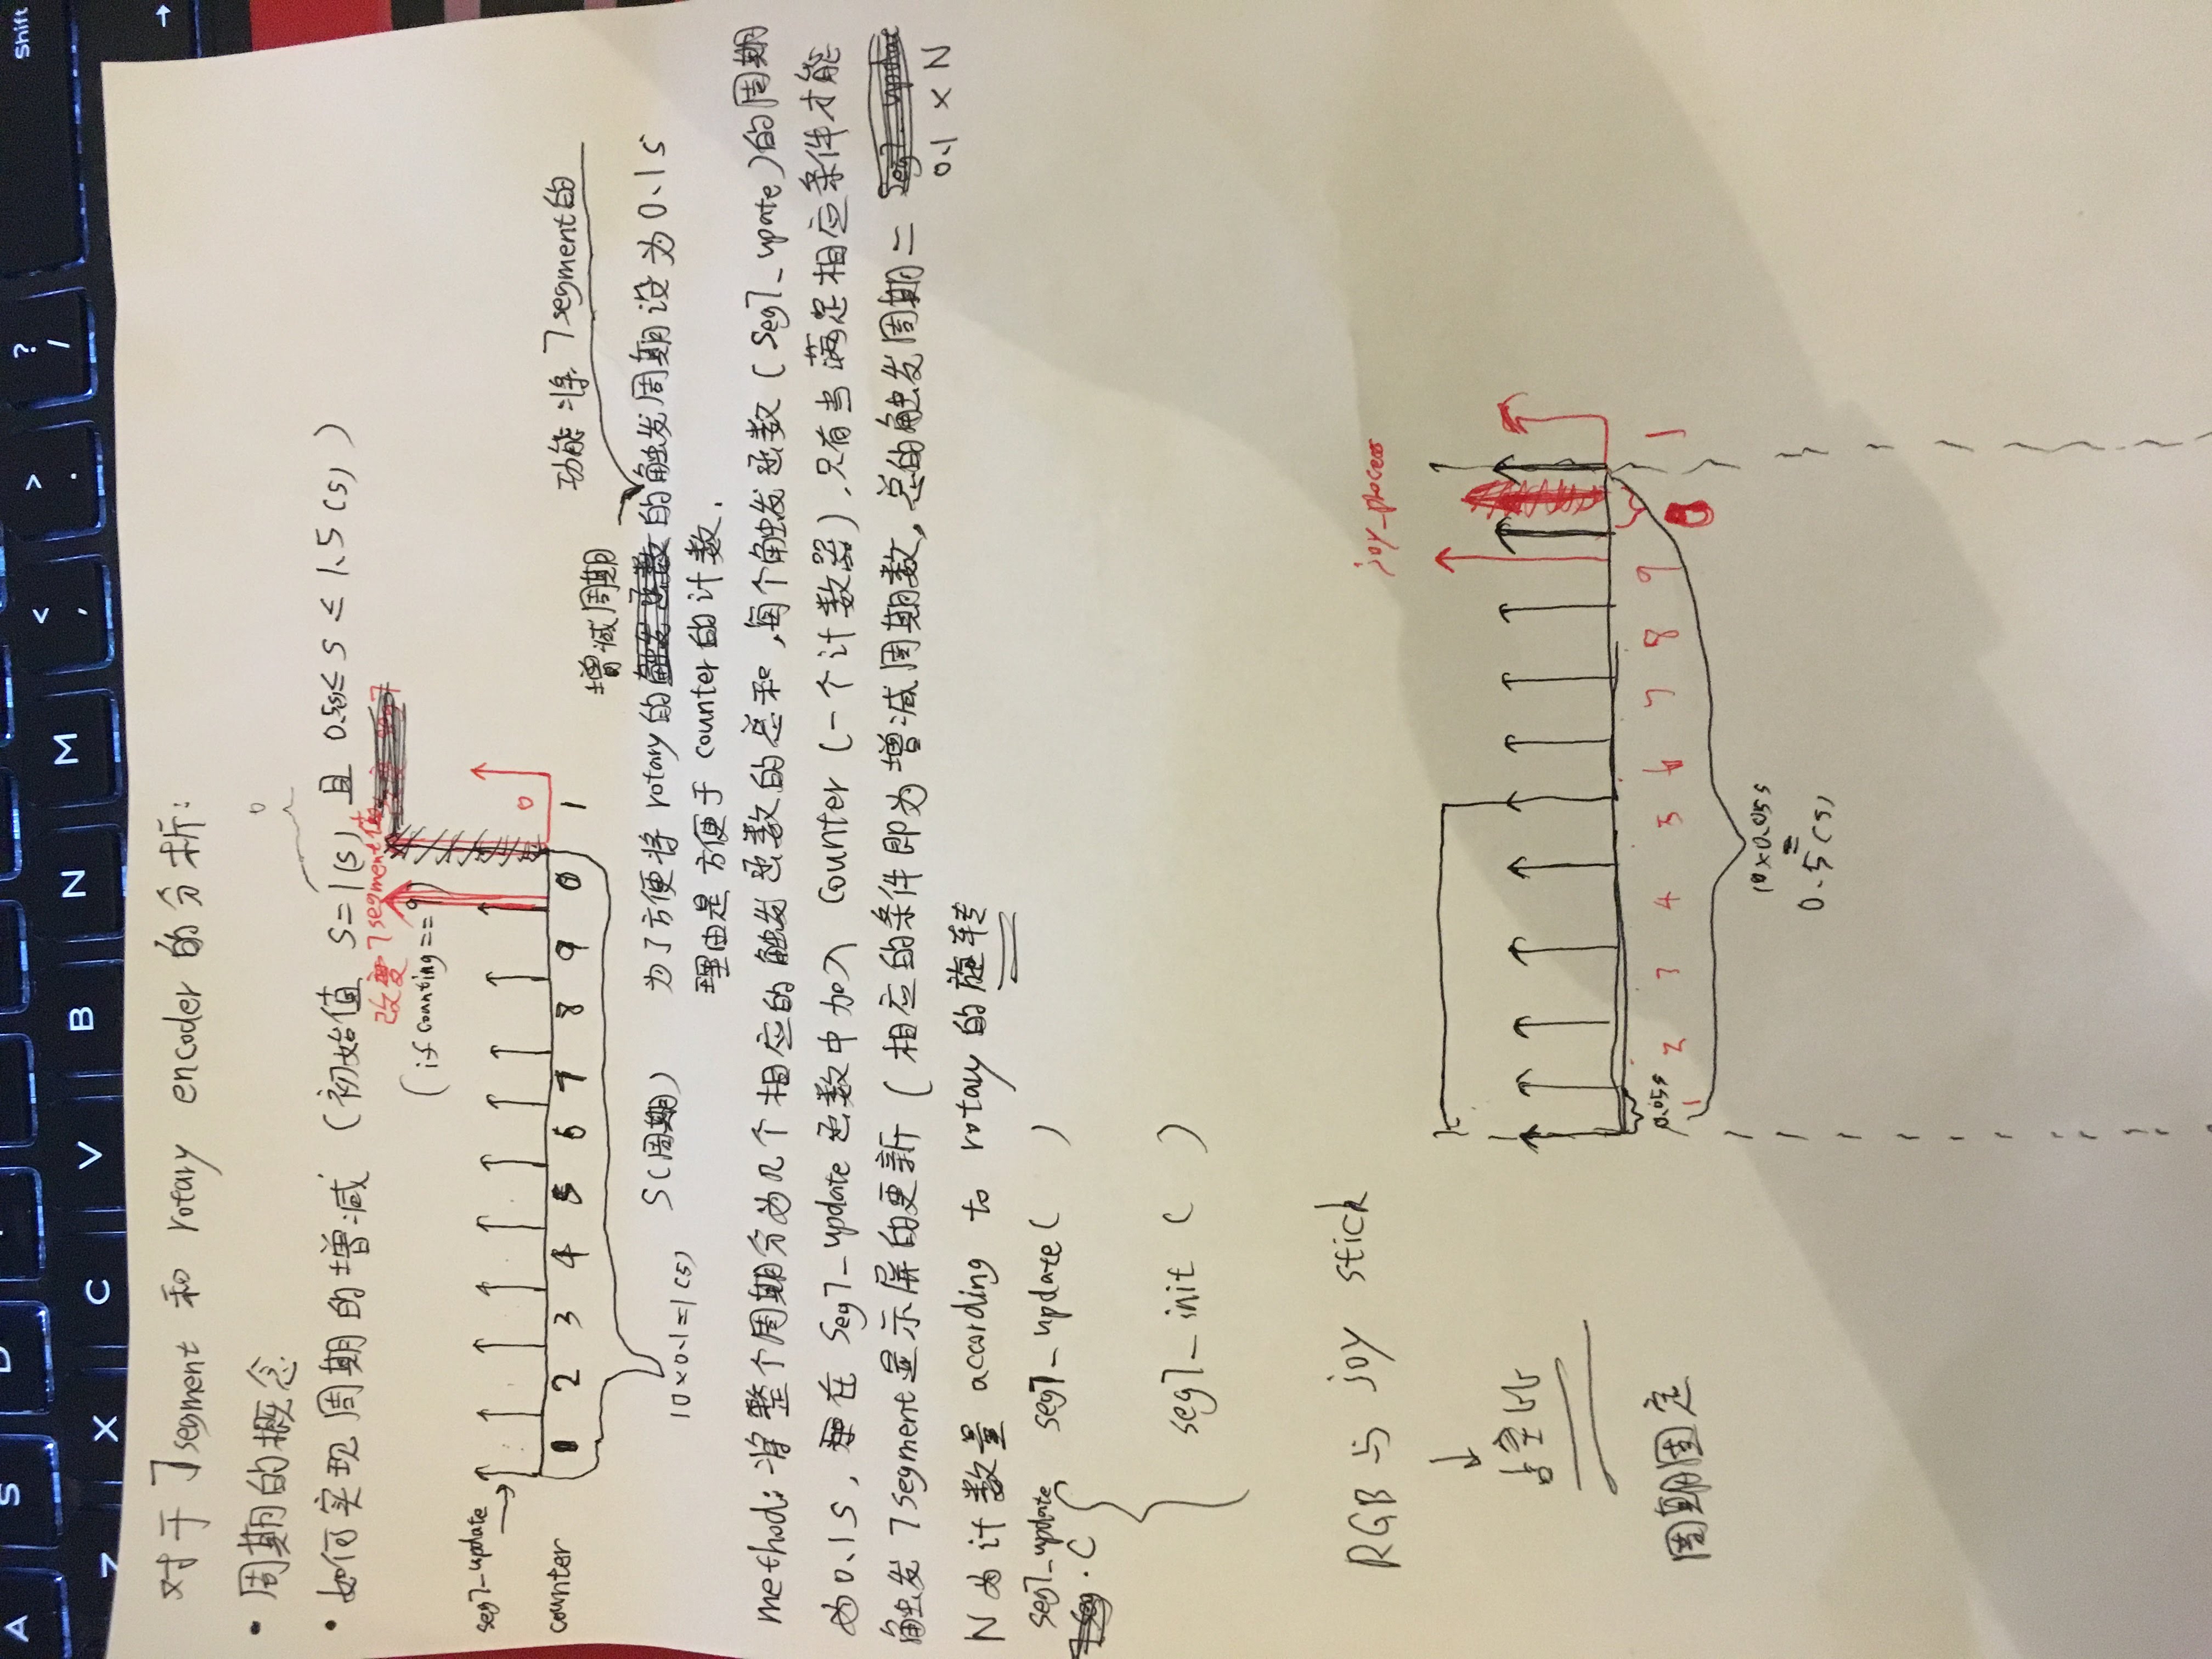 A S D
Shift
Z X C V B N M < , > . ? /
→
对于7segment 和 rotary encoder 的分析:
• 周期的概念
0
• 如何实现周期的增减 (初始值 S=1(s) 且 0.5s≤ S ≤ 1.5(s))
改变7segment值
(if counting == 9)
seg7_update →
0
counter 1 2 3 4 5 6 7 8 9 0 1
10×0.1=1(s)
S(周期)
增减周期 功能将7segment的
为了方便将 rotary的的触发周期设为0.1s
理由是方便于 counter的计数.
method: 将整个周期分为几个相应的触发函数的总和,每个触发函数(Seg7_upate)的周期
为0.1s, 在 Seg7_update 函数中加入 counter (一个计数器),只有当满足相应条件才能
触发7segment显示屏的更新 (相应的条件即为增减周期数,总的触发周期=
0.1 × N
N为计数量 according to rotary的旋转
seg7_update seg7_update( )
.C {
seg7_init ( )
RGB与 joy stick
joy_process
↓
占空比
0.05s
1 2 3 4 5 6 7 8 9 0 1
周期固定
10×0.05s
=
0.5(s)